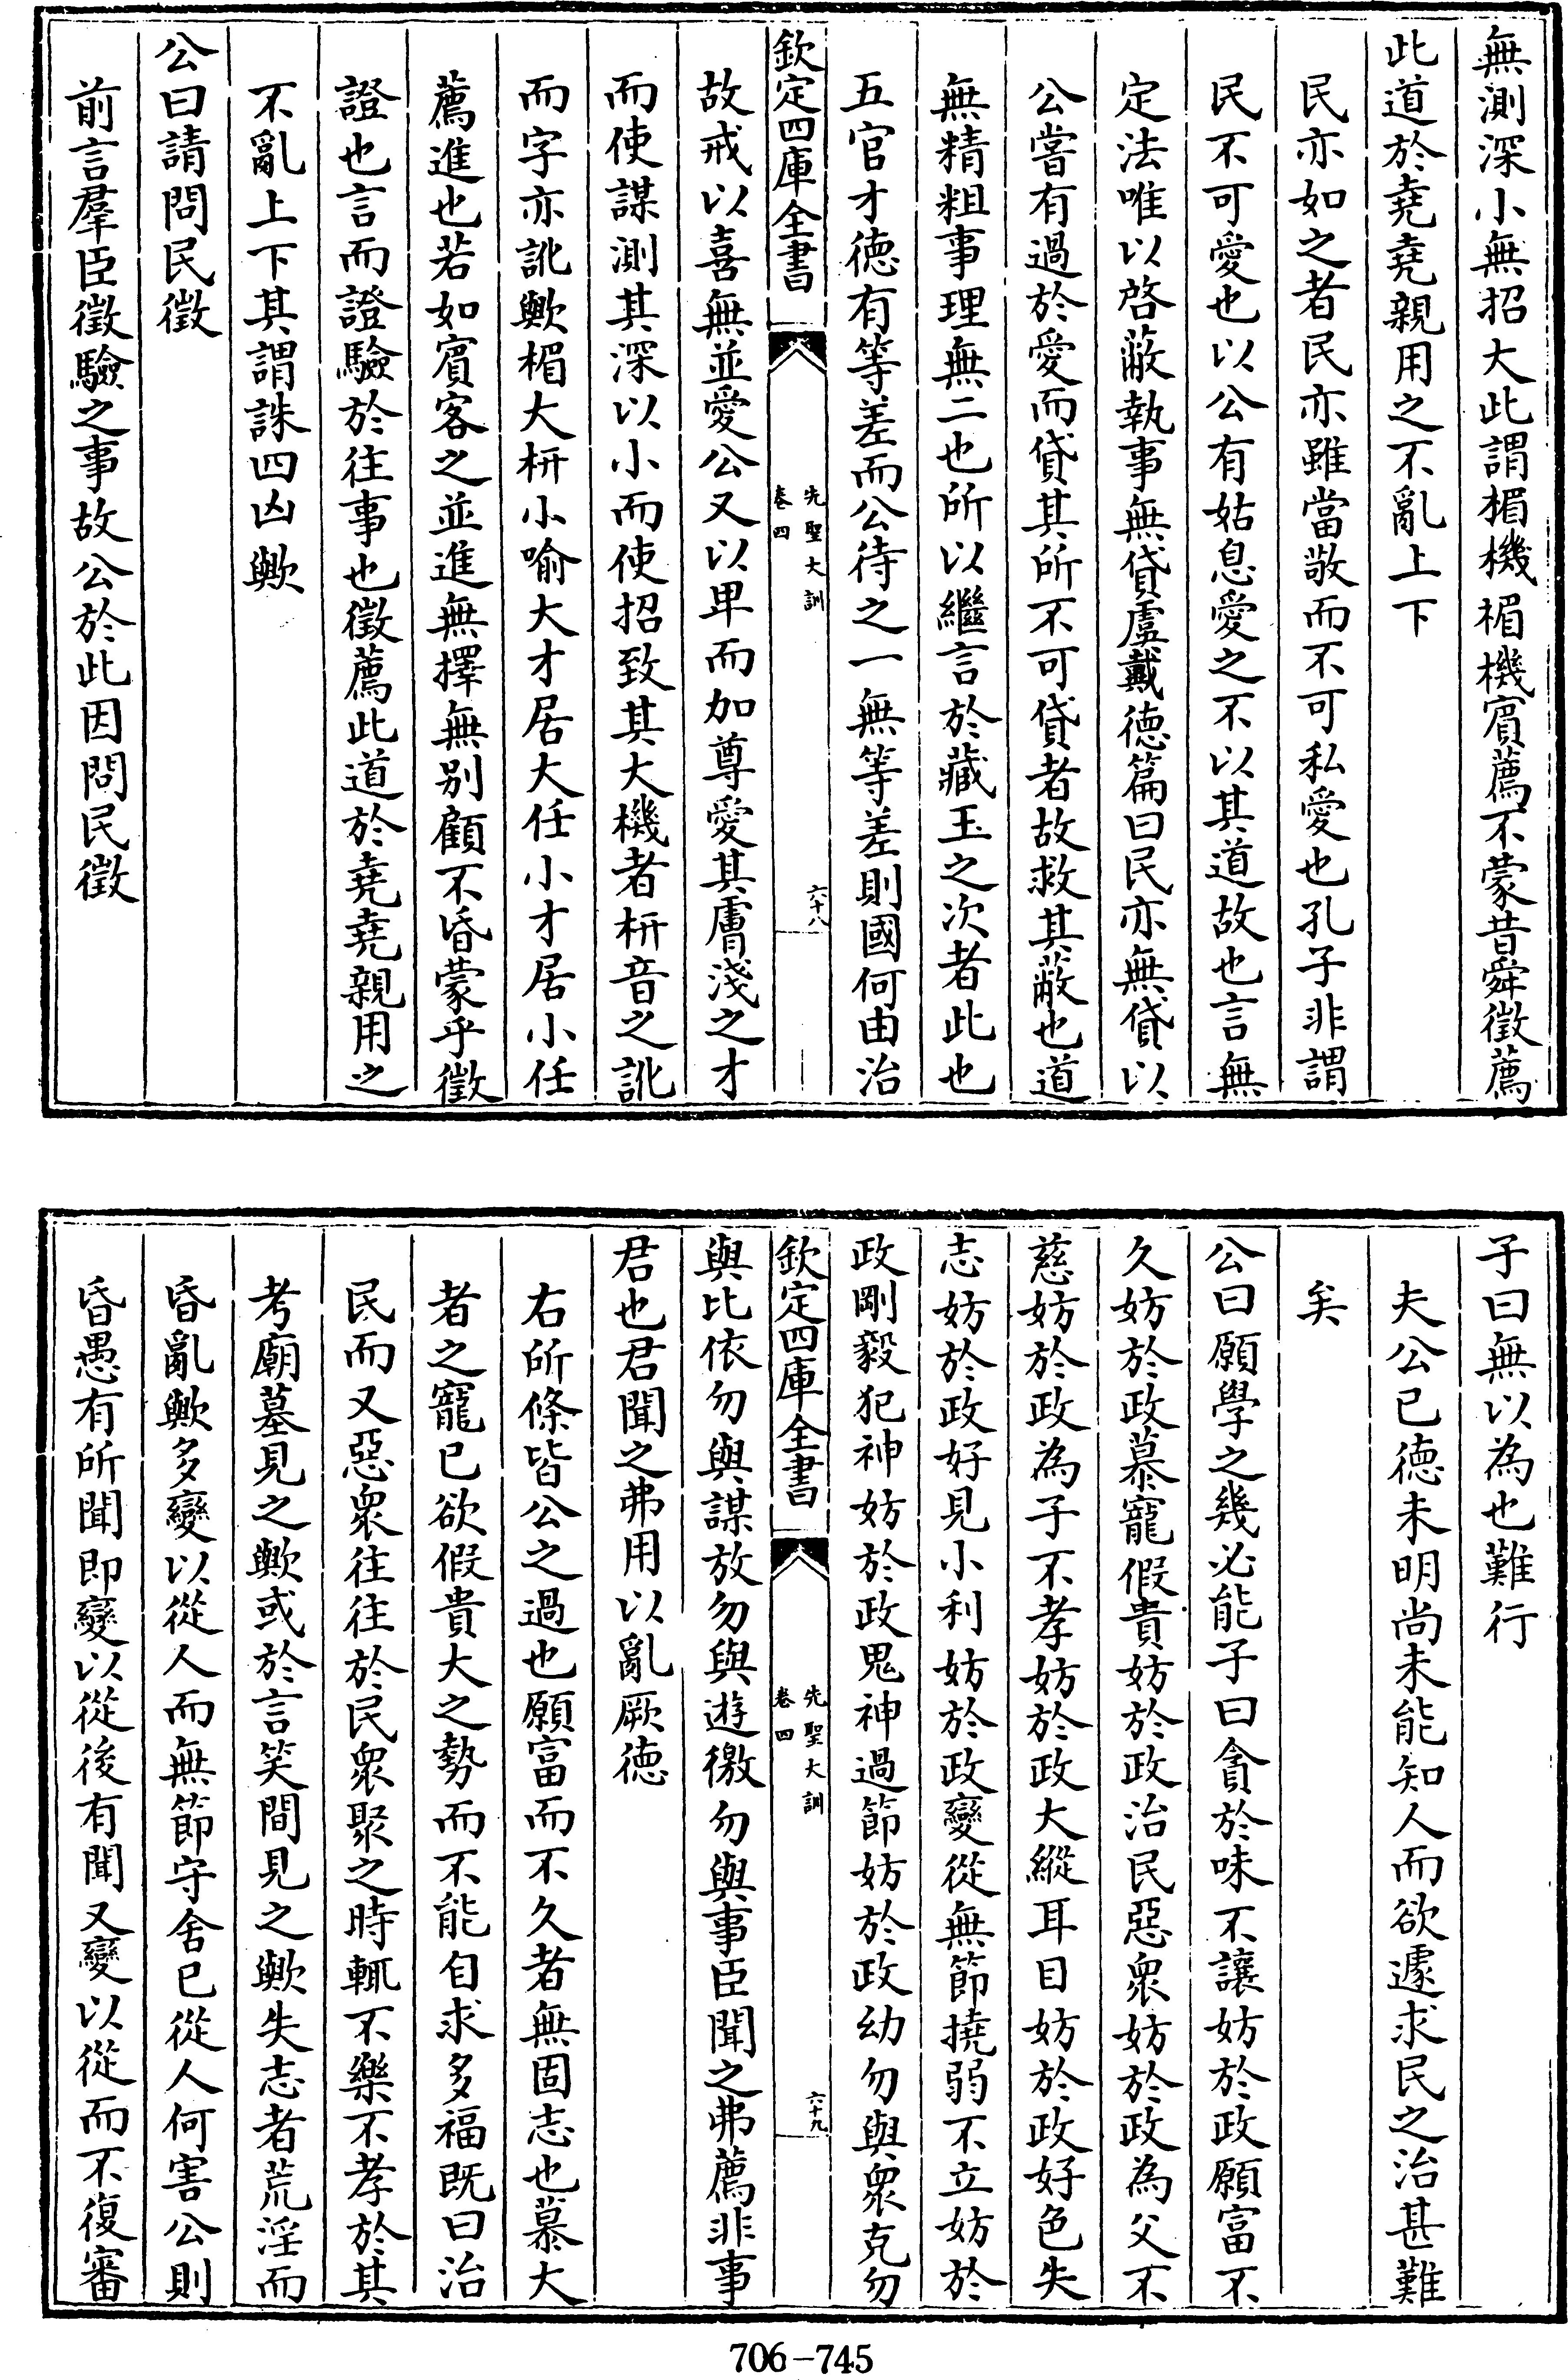 無測深小無招大此謂楣機楣機賓薦不蒙昔舜徵薦
此道於堯堯親用之不亂上下
民亦如之者民亦雖當敬而不可私愛也孔子非謂
民不可愛也以公有姑息愛之不以其道故也言無
定法唯以啓蔽執事無貸盧戴德篇曰民亦無貸以
公嘗有過於愛而貸其所不可貸者故救其蔽也道
無精粗事理無二也所以繼言於藏玉之次者此也
五官才德有等差而公待之一無等差則國何由治
欽定四庫全書
先聖大訓
卷四
六十八
故戒以喜無並愛公又以卑而加尊愛其膚淺之才
而使謀測其深以小而使招致其大機者枅音之訛
而字亦訛歟楣大枅小喻大才居大任小才居小任
薦進也若如賓客之並進無擇無别顧不昏蒙乎徵
證也言而證驗於往事也徵薦此道於堯堯親用之
不亂上下其謂誅四凶歟
公曰請問民徵
前言羣臣徵驗之事故公於此因問民徵
子曰無以為也難行
夫公已德未明尚未能知人而欲遽求民之治甚難
矣
公曰願學之幾必能子曰貪於味不讓妨於政願富不
久妨於政慕寵假貴妨於政治民惡衆妨於政為父不
慈妨於政為子不孝妨於政大縱耳目妨於政好色失
志妨於政好見小利妨於政變從無節撓弱不立妨於
政剛毅犯神妨於政鬼神過節妨於政幼勿與衆克勿
欽定四庫全書
先聖大訓
卷四
六十九
與比依勿與謀放勿與遊徼勿與事臣聞之弗薦非事
君也君聞之弗用以亂厥德
右所條皆公之過也願富而不久者無固志也慕大
者之寵已欲假貴大之勢而不能自求多福既曰治
民而又惡衆往往於民衆聚之時輒不樂不孝於其
考廟墓見之歟或於言笑間見之歟失志者荒淫而
昏亂歟多變以從人而無節守舍已從人何害公則
昏愚有所聞即變以從後有聞又變以從而不復審
706-745